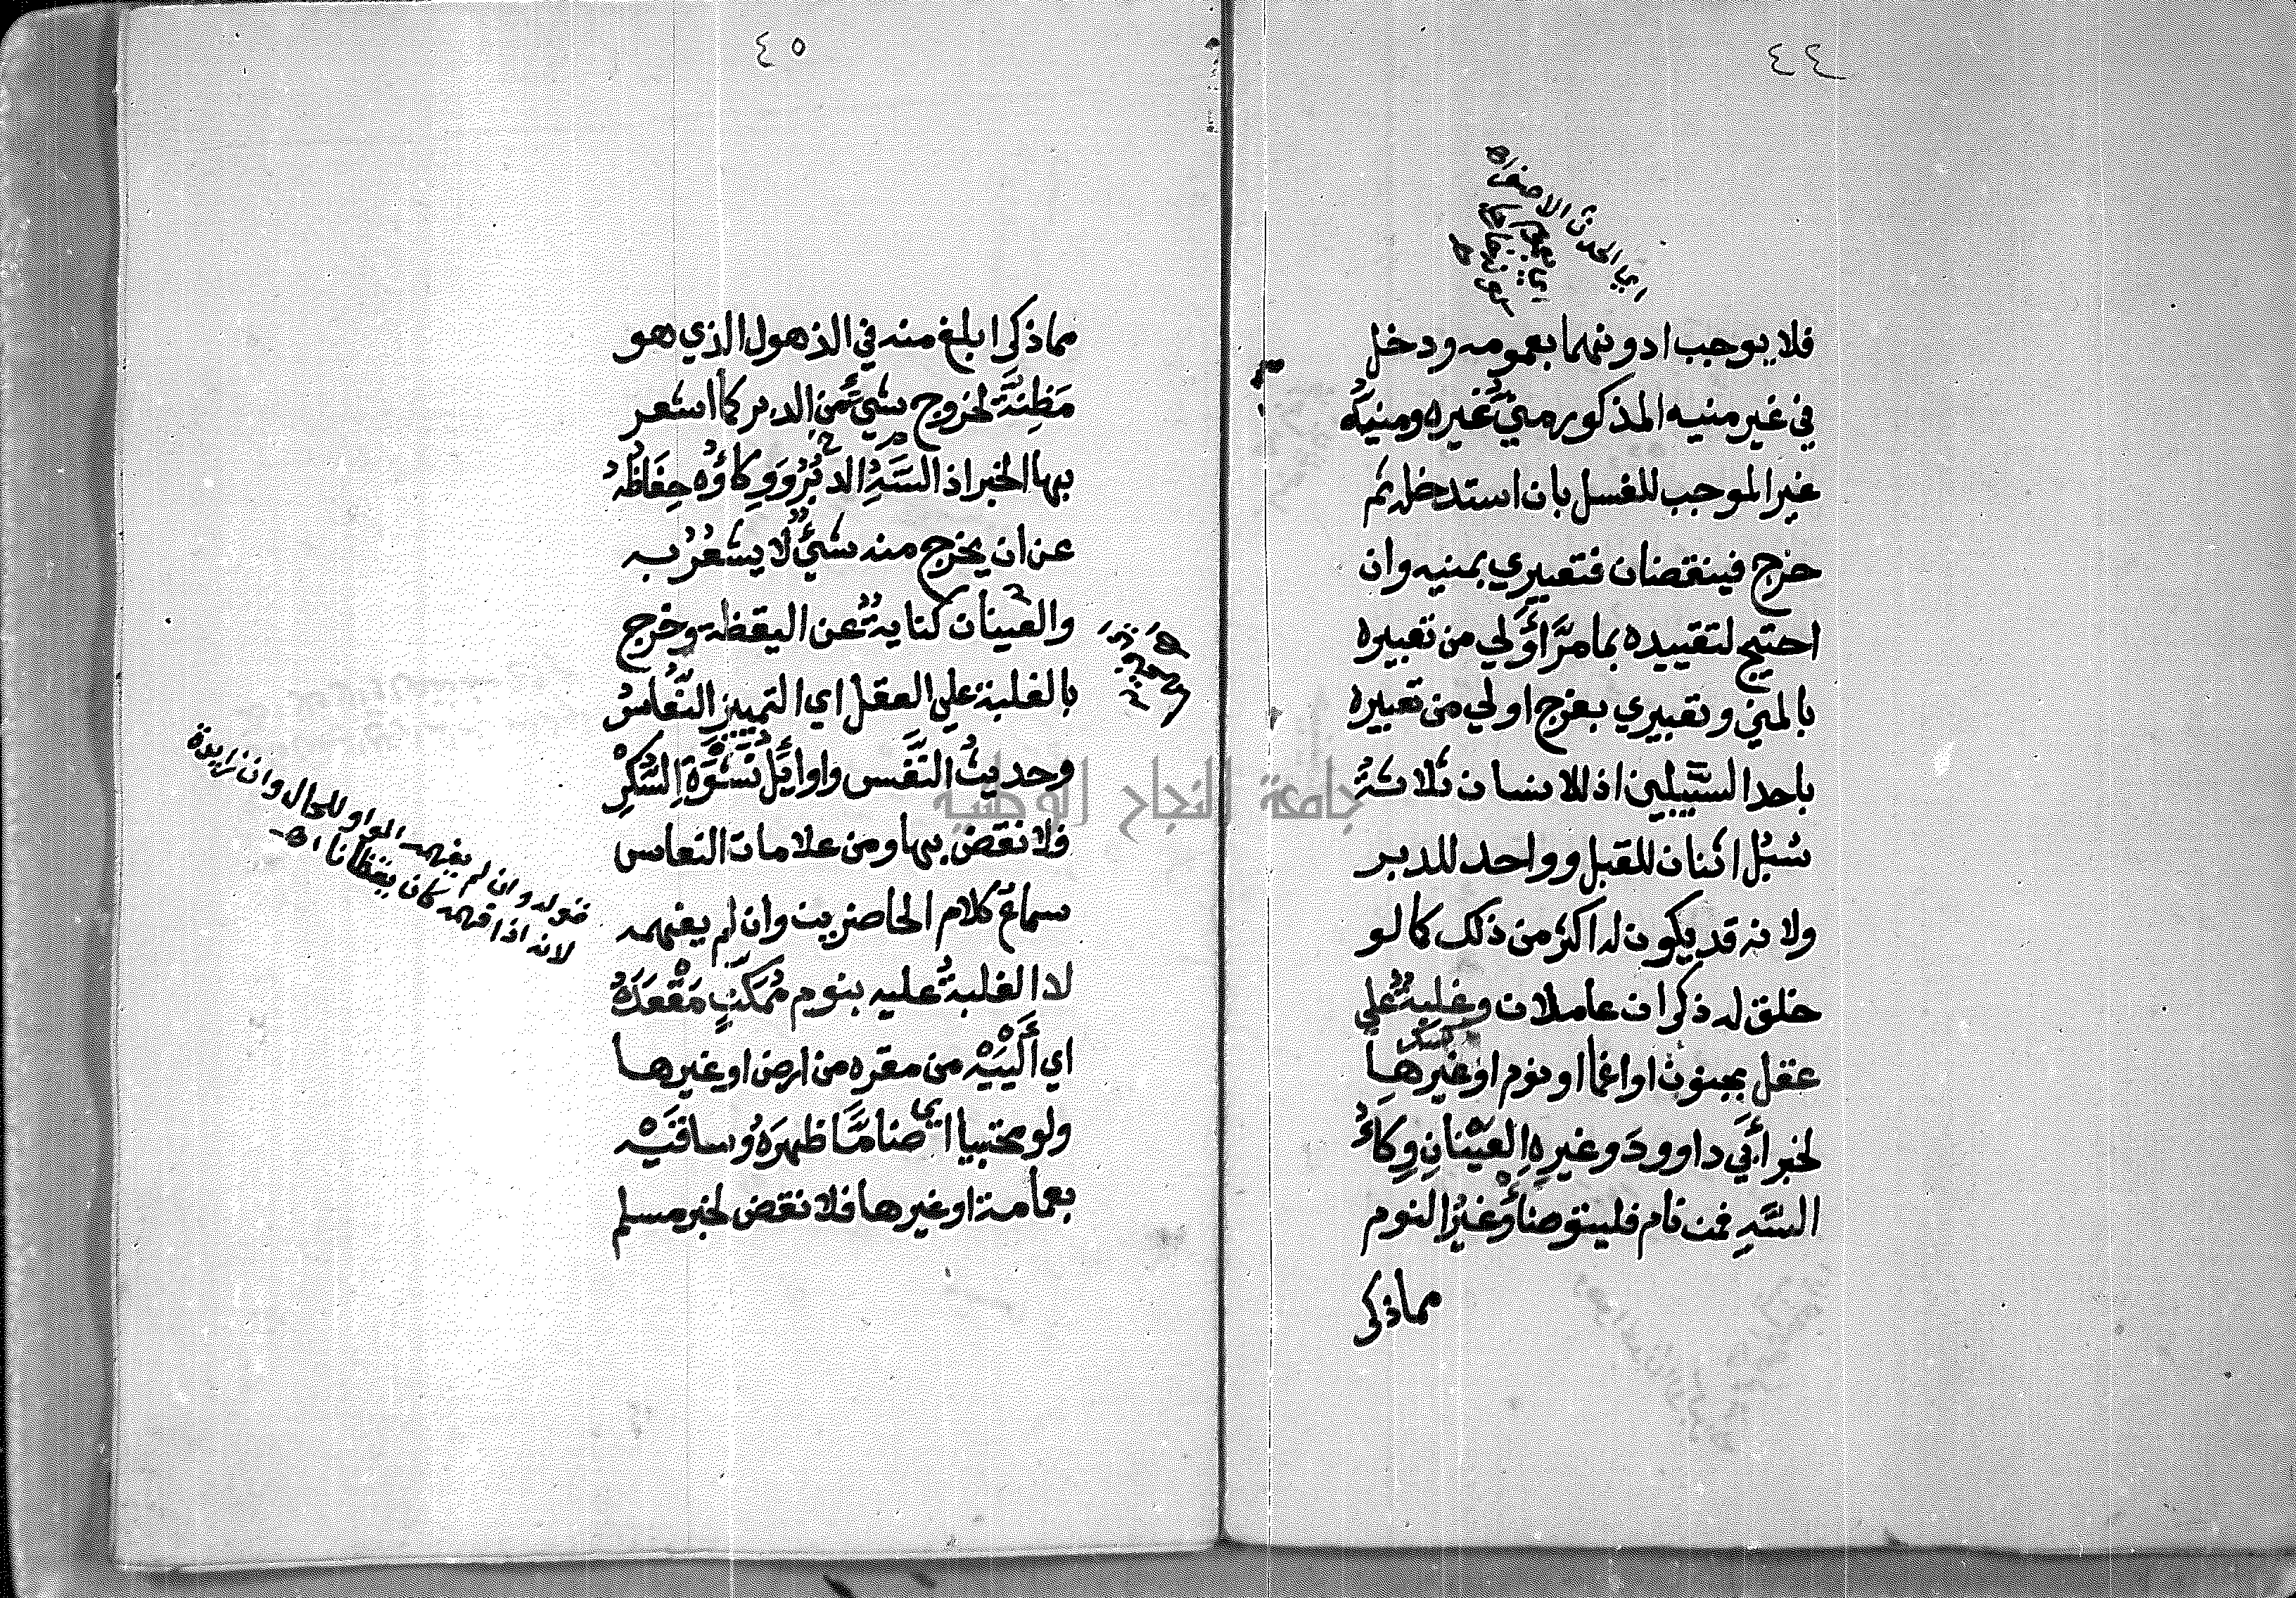 ٤٤
اي الحدث الاصغر اه
فلا يوجب ادونهما بعمومه ودخل
في غير منيه المذكور منيُّ غيره ومنيُه
غير الموجب للغسل بان استدخله ثم
خرج فينقضان فتعبيري بمنيه وان
احتيج لتقييده بما مرَّ اَوْلي من تعبيره
بالمني وتعبيري بفرج اولي من تعبيره
باحد السَّبيلين اذ للانسان ثلاثةُ
سُبُل اثنان للقبل وواحد للدبر
ولانه قد يكون له اكثر من ذلك كما لو
خلق له ذكران عاملان وغلبةٌ علي
عقل بجنون او اغما او نوم او غيرها
كسكر
لخبر اَبي داوودَ وغيرِهِ العَيْنانِ وِكاءُ
السَّهِ فمن نام فليتوضأ وغيرُ النوم
مماذكر
٤٥
مماذكر ابلغ منه في الذهول الذي هو
مَظِنَّة لخروج شيٍّ من الدبر كما اشعر
بها الخبر اذ السَّهِ الدُّبُرُ وَوِكاؤُه حِفَاظُهُ
عن ان يخرج منه شيٌ لا يشعُرُ به
والعينان كناية عن اليقظة وخرج
بالغلبة علي العقل اي التمييز النُّعَاسُ
وحديثُ النَّفس واوايلُ نَشْوَةِ السُّكْرِ
فلا نقض بها ومن علامات النعاس
سماعُ كلام الحاضرين وان لم يفهمه
لا الغلبةُ عليه بنوم مُمَكِّنٍ مَقْعَدَهُ
اي أَلْيَيْهِ من مقره من ارض او غيرها
ولو محتبيا اي ضامًّا ظهرَهُ وساقَيْه
بعمامة او غيرها فلا نقض لخبر مسلم
قوله وان لم يفهمه الواو للحال وان زايدة
لانه اذا فهمه كان يقظانا اه
جامعة النجاح الوطنية